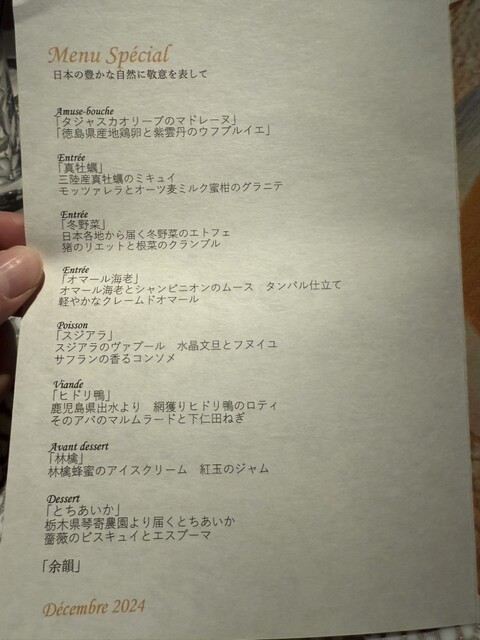 Menu Spécial
日本の豊かな自然に敬意を表して
Amuse-bouche
「タジャスカオリーブのマドレーヌ」
「徳島県産地鶏卵と紫雲丹のウフブルイエ」
Entrée
「真牡蠣」
三陸産真牡蠣のミキュイ
モッツァレラとオーツ麦ミルク蜜柑のグラニテ
Entrée
「冬野菜」
日本各地から届く冬野菜のエトフェ
猪のリエットと根菜のクランブル
Entrée
「オマール海老」
オマール海老とシャンピニオンのムース タンバル仕立て
軽やかなクレームドオマール
Poisson
「スジアラ」
スジアラのヴァプール 水晶文旦とフヌイユ
サフランの香るコンソメ
Viande
「ヒドリ鴨」
鹿児島県出水より 網獲りヒドリ鴨のロティ
そのアバのマルムラードと下仁田ねぎ
Avant dessert
「林檎」
林檎蜂蜜のアイスクリーム 紅玉のジャム
Dessert
「とちあいか」
栃木県琴寄農園より届くとちあいか
薔薇のビスキュイとエスプーマ
「余韻」
Décembre 2024